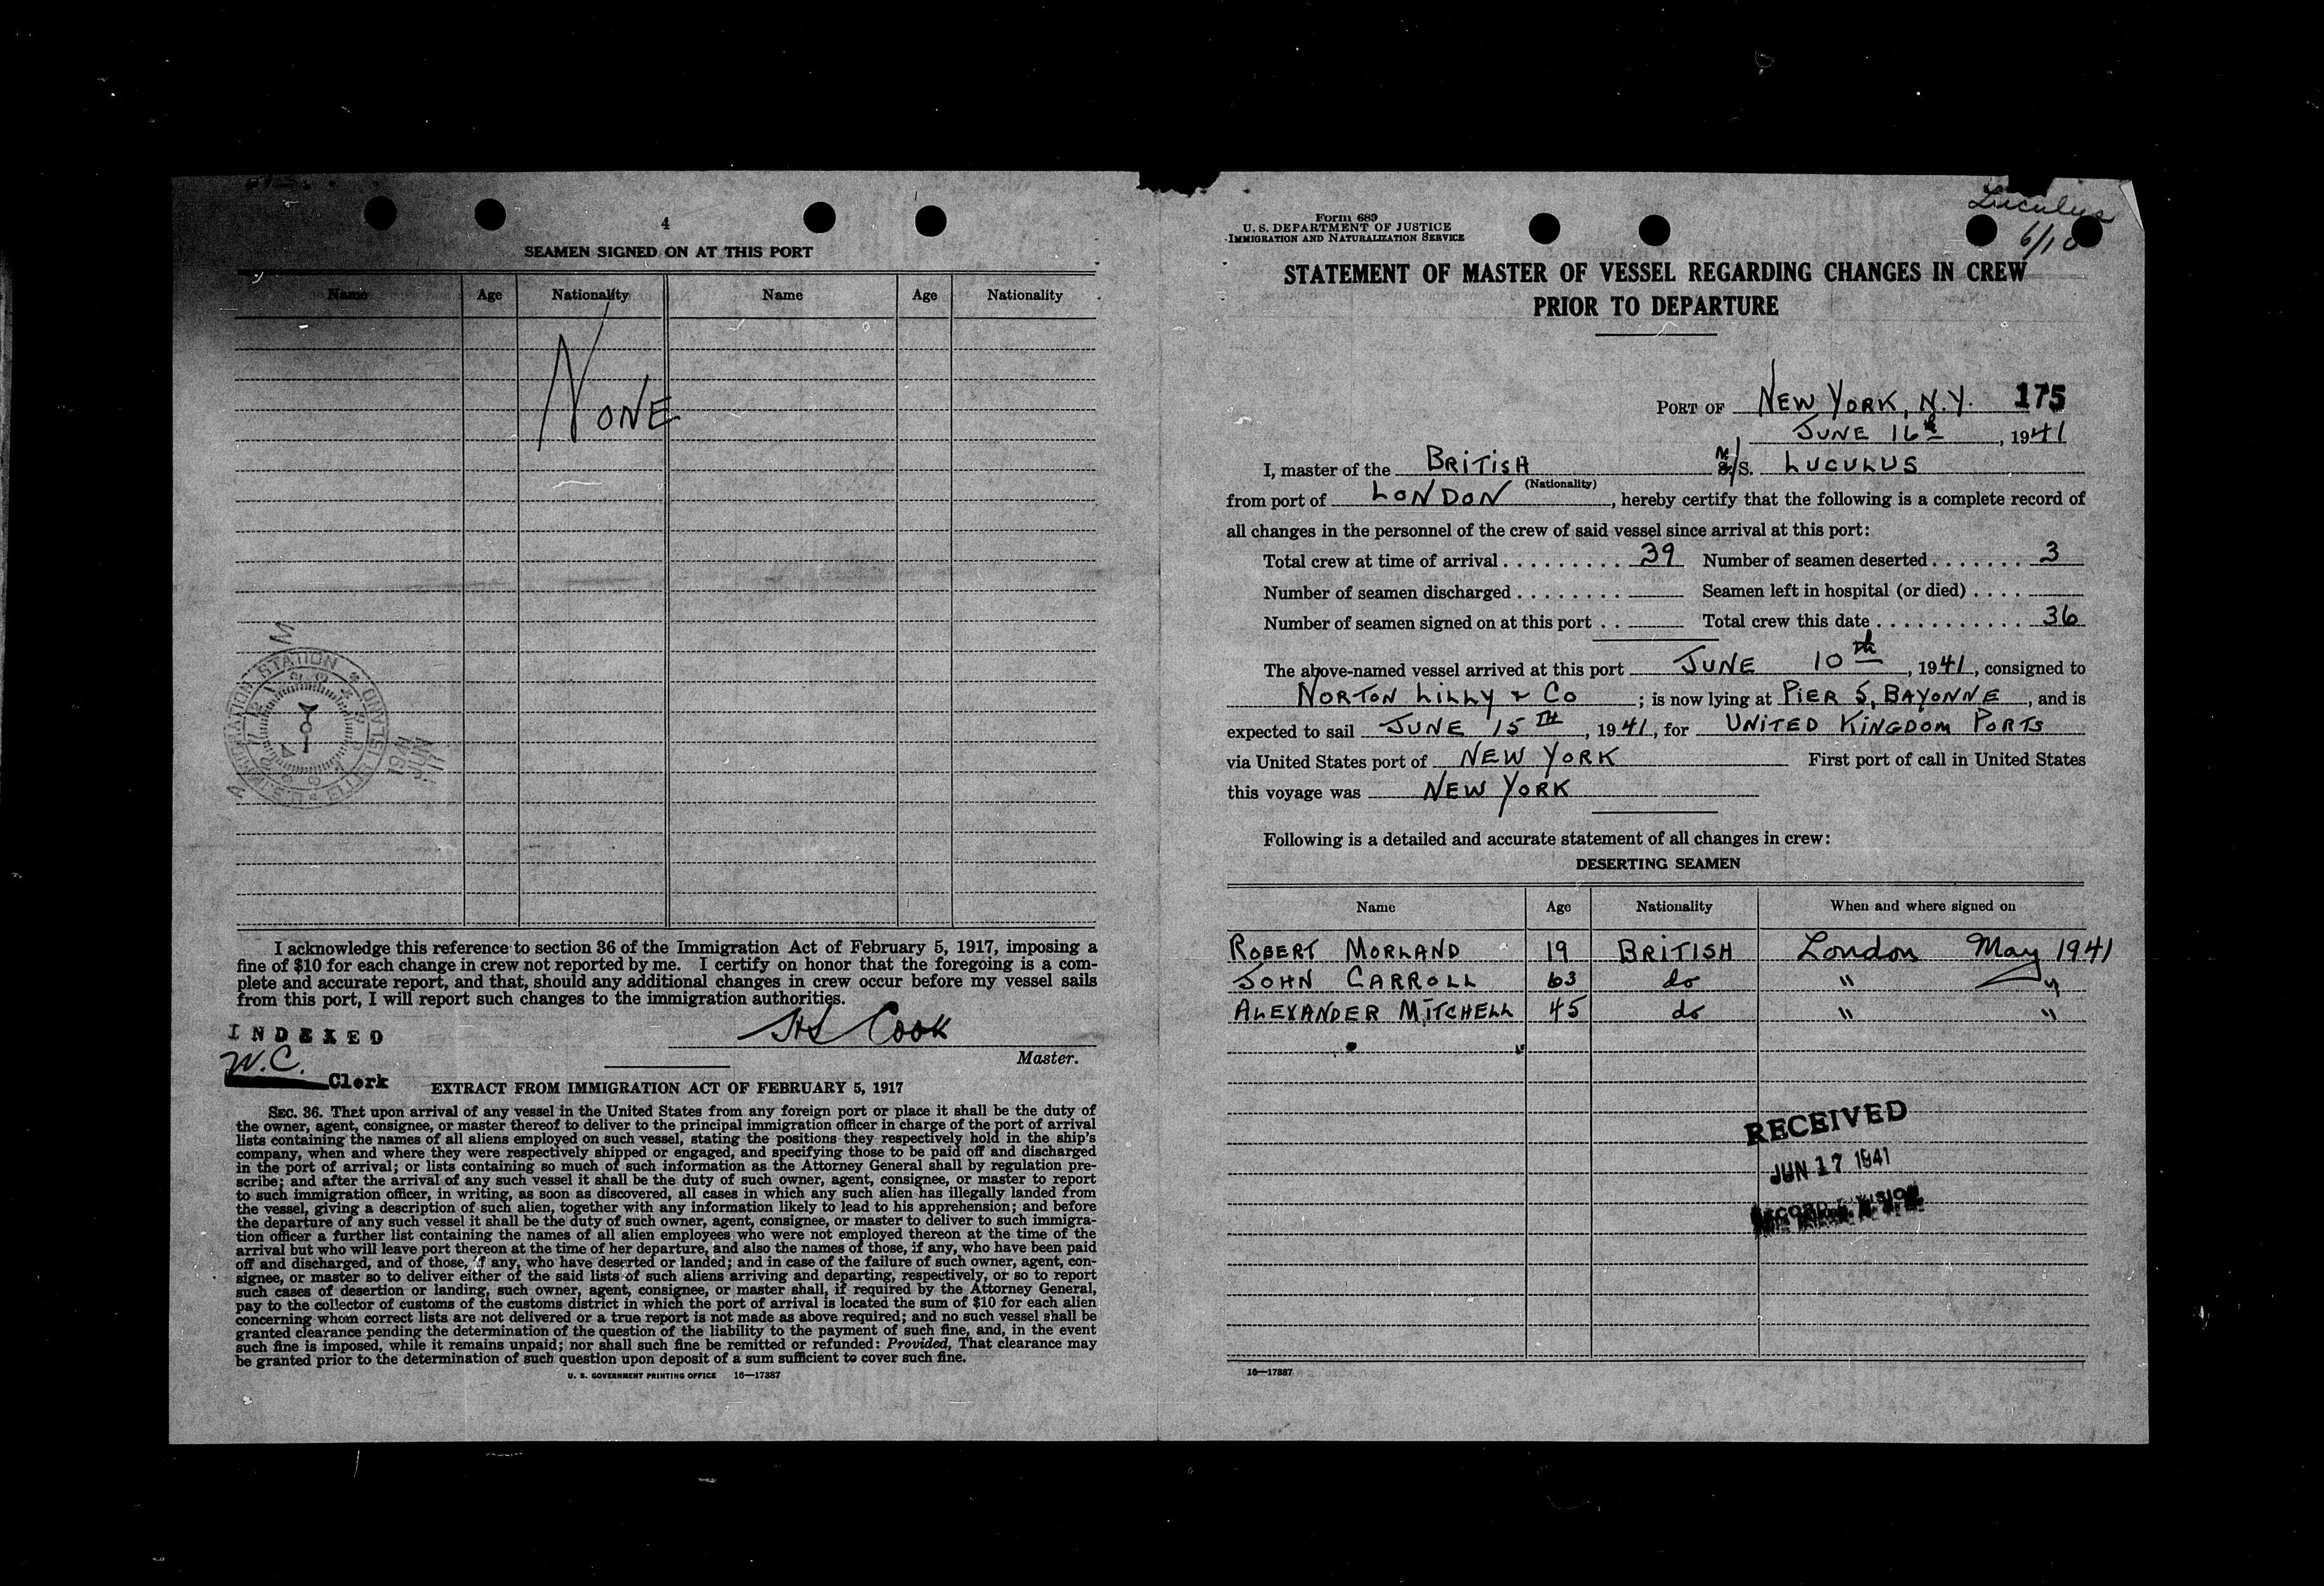 4
SEAMEN SIGNED ON AT THIS PORT
Name Age Nationality Name Age Nationality
NONE
STATION
ELLIS ISLAND
1941 JUN 17
I acknowledge this reference to section 36 of the Immigration Act of February 5, 1917, imposing a
fine of $10 for each change in crew not reported by me. I certify on honor that the foregoing is a com-
plete and accurate report, and that, should any additional changes in crew occur before my vessel sails
from this port, I will report such changes to the immigration authorities.
INDEXED
Cook
W.C.
Master.
Clerk
EXTRACT FROM IMMIGRATION ACT OF FEBRUARY 5, 1917
SEC. 36. That upon arrival of any vessel in the United States from any foreign port or place it shall be the duty of
the owner, agent, consignee, or master thereof to deliver to the principal immigration officer in charge of the port of arrival
lists containing the names of all aliens employed on such vessel, stating the positions they respectively hold in the ship's
company, when and where they were respectively shipped or engaged, and specifying those to be paid off and discharged
in the port of arrival; or lists containing so much of such information as the Attorney General shall by regulation pre-
scribe; and after the arrival of any such vessel it shall be the duty of such owner, agent, consignee, or master to report
to such immigration officer, in writing, as soon as discovered, all cases in which any such alien has illegally landed from
the vessel, giving a description of such alien, together with any information likely to lead to his apprehension; and before
the departure of any such vessel it shall be the duty of such owner, agent, consignee, or master to deliver to such immigra-
tion officer a further list containing the names of all alien employees who were not employed thereon at the time of the
arrival but who will leave port thereon at the time of her departure, and also the names of those, if any, who have been paid
off and discharged, and of those, if any, who have deserted or landed; and in case of the failure of such owner, agent, con-
signee, or master so to deliver either of the said lists of such aliens arriving and departing, respectively, or so to report
such cases of desertion or landing, such owner, agent, consignee, or master shall, if required by the Attorney General,
pay to the collector of customs of the customs district in which the port of arrival is located the sum of $10 for each alien
concerning whom correct lists are not delivered or a true report is not made as above required; and no such vessel shall be
granted clearance pending the determination of the question of the liability to the payment of such fine, and, in the event
such fine is imposed, while it remains unpaid; nor shall such fine be remitted or refunded: Provided, That clearance may
be granted prior to the determination of such question upon deposit of a sum sufficient to cover such fine.
U. S. GOVERNMENT PRINTING OFFICE 16—17387
Form 689
U. S. DEPARTMENT OF JUSTICE
IMMIGRATION AND NATURALIZATION SERVICE
Luculus
6/10
STATEMENT OF MASTER OF VESSEL REGARDING CHANGES IN CREW
PRIOR TO DEPARTURE
PORT OF NEW YORK, N.Y. 175
JUNE 16th, 1941
I, master of the BRITISH M/S. LUCULUS
(Nationality)
from port of LONDON, hereby certify that the following is a complete record of
all changes in the personnel of the crew of said vessel since arrival at this port:
Total crew at time of arrival 39 Number of seamen deserted 3
Number of seamen discharged Seamen left in hospital (or died)
Number of seamen signed on at this port Total crew this date 36
The above-named vessel arrived at this port JUNE 10th, 1941, consigned to
NORTON LILLY & CO; is now lying at PIER 5, BAYONNE, and is
expected to sail JUNE 15TH, 1941, for UNITED KINGDOM PORTS
via United States port of NEW YORK First port of call in United States
this voyage was NEW YORK
Following is a detailed and accurate statement of all changes in crew:
DESERTING SEAMEN
Name Age Nationality When and where signed on
ROBERT MORLAND 19 BRITISH London May 1941
JOHN CARROLL 63 do " "
ALEXANDER MITCHELL 45 do " "
RECEIVED
JUN 17 1941
16—17387